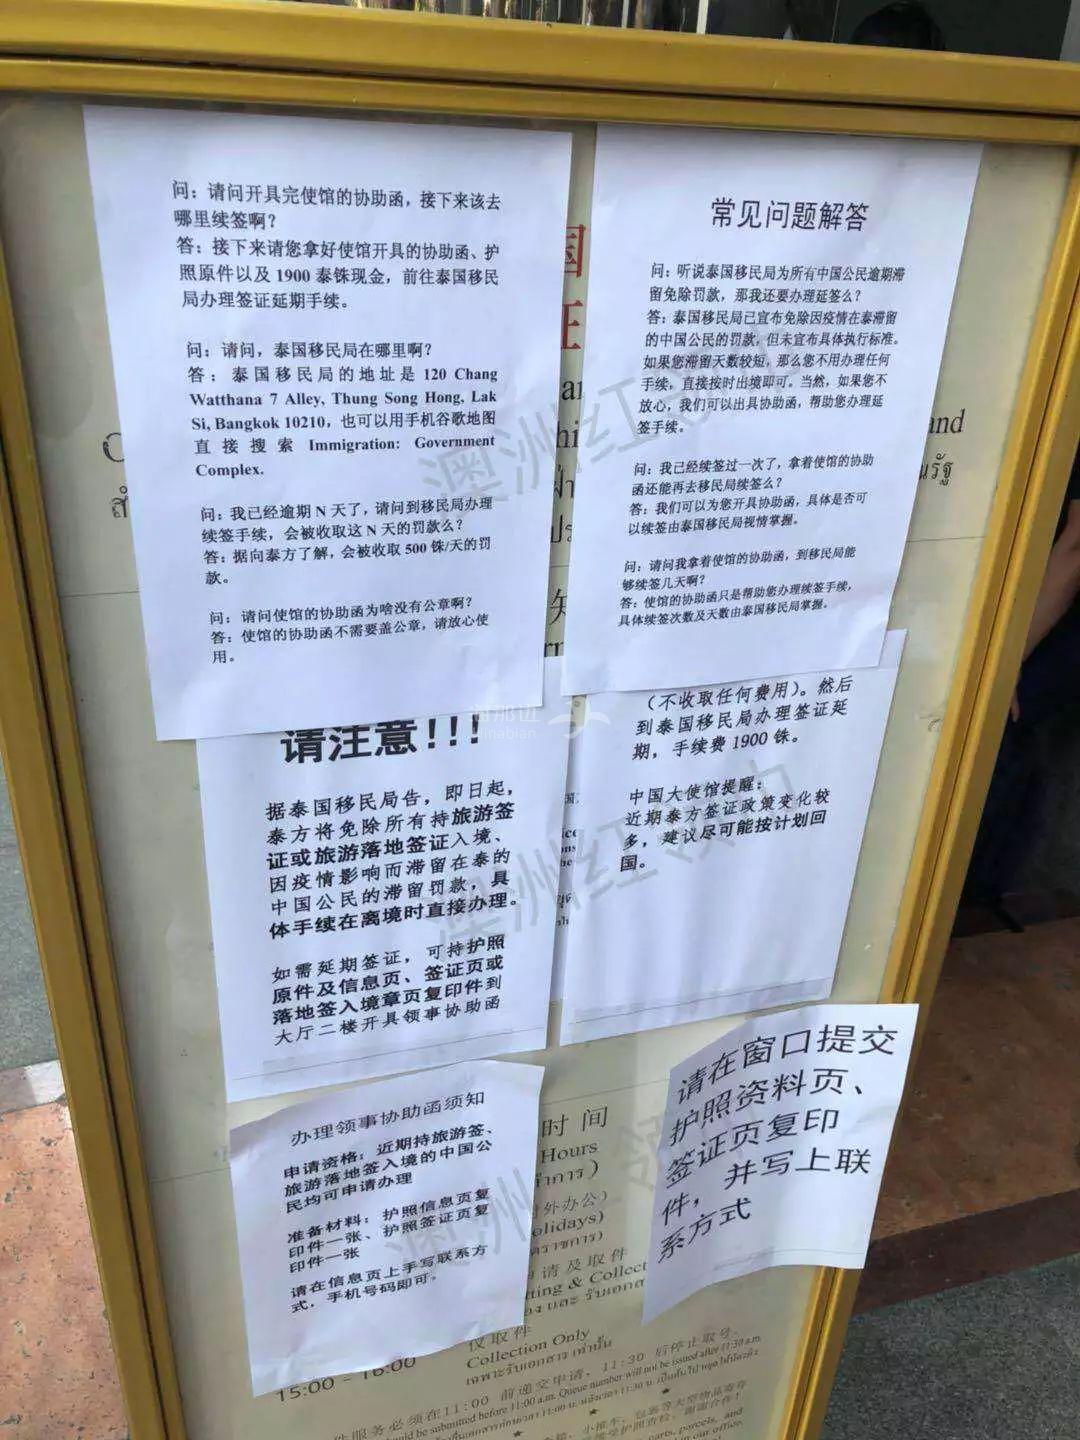 问：请问开具完使馆的协助函，接下来该去
哪里续签啊？
答：接下来请您拿好使馆开具的协助函、护
照原件以及 1900 泰铢现金，前往泰国移民
局办理签证延期手续。
问：请问，泰国移民局在哪里啊？
答：泰国移民局的地址是 120 Chang
Watthana 7 Alley, Thung Song Hong, Lak
Si, Bangkok 10210，也可以用手机谷歌地图
直接搜索 Immigration: Government
Complex.
问：我已经逾期 N 天了，请问到移民局办理
续签手续，会被收取这 N 天的罚款么？
答：据向泰方了解，会被收取 500 铢/天的罚
款。
问：请问使馆的协助函为啥没有公章啊？
答：使馆的协助函不需要盖公章，请放心使
用。
常见问题解答
问：听说泰国移民局为所有中国公民逾期滞
留免除罚款，那我还要办理延签么？
答：泰国移民局已宣布免除因疫情在泰滞留
的中国公民的罚款，但未宣布具体执行标准。
如果您滞留天数较短，那么您不用办理任何
手续，直接按时出境即可。当然，如果您不
放心，我们可以出具协助函，帮助您办理延
签手续。
问：我已经续签过一次了，拿着使馆的协助
函还能再去移民局续签么？
答：我们可以为您开具协助函，具体是否可
以续签由泰国移民局视情掌握。
问：请问我拿着使馆的协助函，到移民局能
够续签几天啊？
答：使馆的协助函只是帮助您办理续签手续，
具体续签次数及天数由泰国移民局掌握。
国
证
and
知
请注意！！！
据泰国移民局告，即日起，
泰方将免除所有持旅游签
证或旅游落地签证入境、
因疫情影响而滞留在泰的
中国公民的滞留罚款，具
体手续在离境时直接办理。
如需延期签证，可持护照
原件及信息页、签证页或
落地签入境章页复印件到
大厅二楼开具领事协助函
（不收取任何费用）。然后
到泰国移民局办理签证延
期，手续费 1900 铢。
中国大使馆提醒：
近期泰方签证政策变化较
多，建议尽可能按计划回
国。
办理领事协助函须知
申请资格：近期持旅游签、
旅游落地签入境的中国公
民均可申请办理
准备材料：护照信息页复
印件一张、护照签证页复
印件一张
请在信息页上手写联系方
式，手机号码即可。
请在窗口提交
护照资料页、
签证页复印
件，并写上联
系方式
时间
Hours
对外办公）
olidays)
申请及取件
tting & Collect
仅取件
Collection Only
เฉพาะรับเอกสาร เท่านั้น
15:00 - 16:00
件服务必须在11:00 前递交申请，11:30 后停止取号。
uld be submitted before 11:00 a.m. Queue number will not be issued after 11:30 a.m.
澳洲红领巾
澳洲红领巾
澳洲红领巾
海那边
hinabian